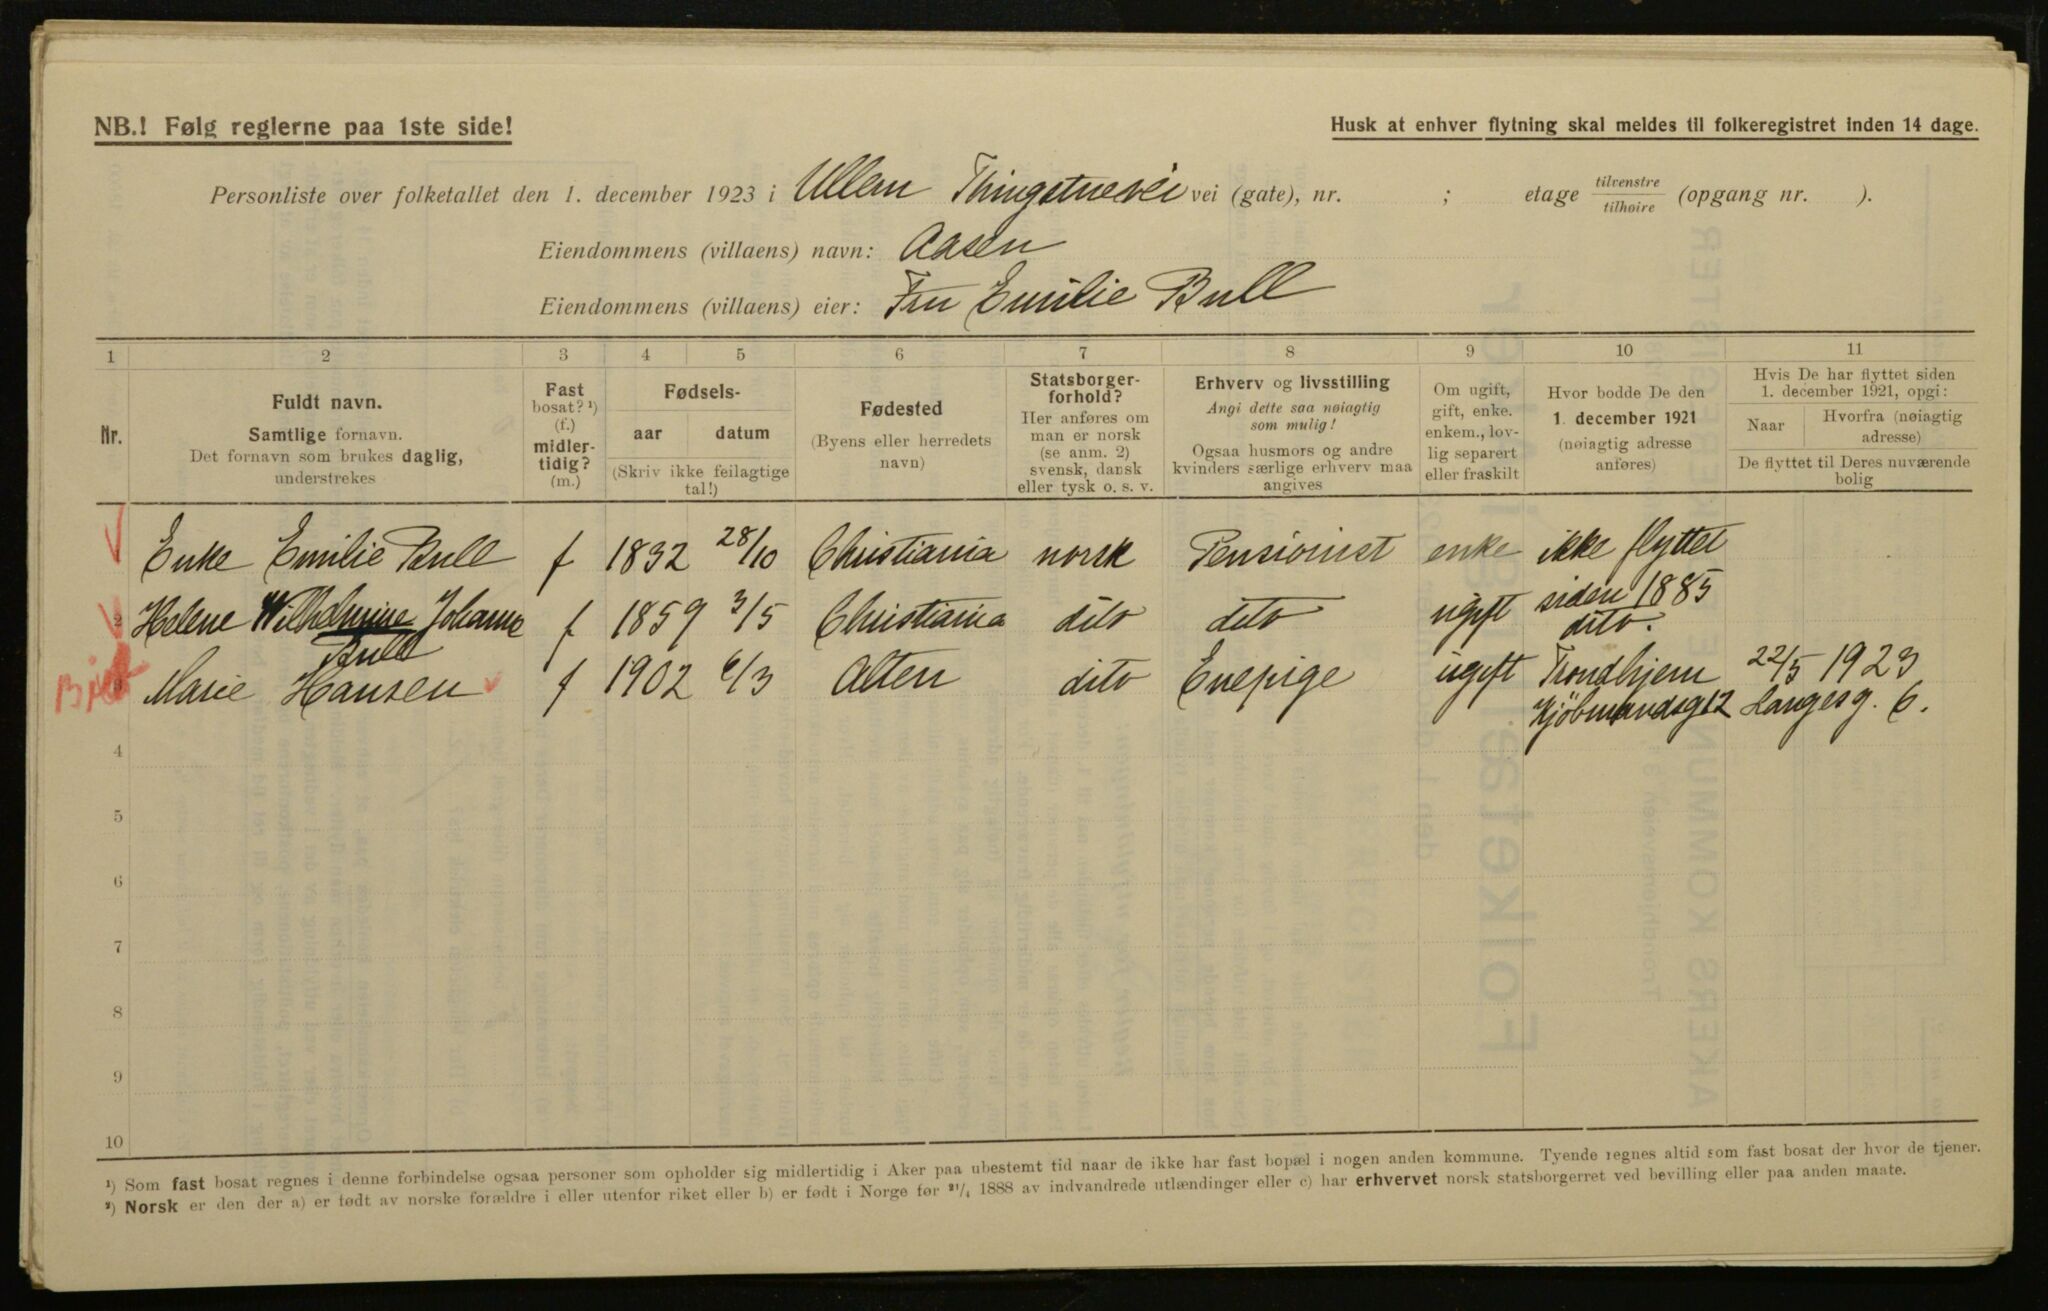 NB.! Følg reglerne paa 1ste side!
Husk at enhver flytning skal meldes til folkeregistret inden 14 dage.
Personliste over folketallet den 1. december 1923 i Ullern Thingstuevei vei (gate), nr. ; etage tilvenstre/tilhøire (opgang nr. ).
Eiendommens (villaens) navn: Aasen
Eiendommens (villaens) eier: Fru Emilie Bull
1 2 3 4 5 6 7 8 9 10 11
Nr.
Fuldt navn.
Samtlige fornavn.
Det fornavn som brukes daglig,
understrekes
Fast
bosat? ¹)
(f.)
midler-
tidig?
(m.)
Fødsels-
aar datum
(Skriv ikke feilagtige
tal!)
Fødested
(Byens eller herredets
navn)
Statsborger-
forhold?
Her anføres om
man er norsk
(se anm. 2)
svensk, dansk
eller tysk o. s. v.
Erhverv og livsstilling
Angi dette saa nøiagtig
som mulig!
Ogsaa husmors og andre
kvinders særlige erhverv maa
angives
Om ugift,
gift, enke.
enkem., lov-
lig separert
eller fraskilt
Hvor bodde De den
1. december 1921
(nøiagtig adresse
anføres)
Hvis De har flyttet siden
1. december 1921, opgi:
Naar Hvorfra (nøiagtig
adresse)
De flyttet til Deres nuværende
bolig
Enke Emilie Bull f 1832 28/10 Christiania norsk Pensionist enke ikke flyttet
siden 1885
2 Helene Wilhelmine Johanne f 1859 3/5 Christiania dito dito ugift dito.
Bull
3 Marie Hansen f 1902 6/3 Alten dito Enepige ugift Trondhjem 22/5 1923
Kjöbmandsg 12 Langesg. 6.
4
5
6
7
8
9
10
¹) Som fast bosat regnes i denne forbindelse ogsaa personer som opholder sig midlertidig i Aker paa ubestemt tid naar de ikke har fast bopæl i nogen anden kommune. Tyende regnes altid som fast bosat der hvor de tjener.
²) Norsk er den der a) er født av norske forældre i eller utenfor riket eller b) er født i Norge før ²¹/₄ 1888 av indvandrede utlændinger eller c) har erhvervet norsk statsborgerret ved bevilling eller paa anden maate.